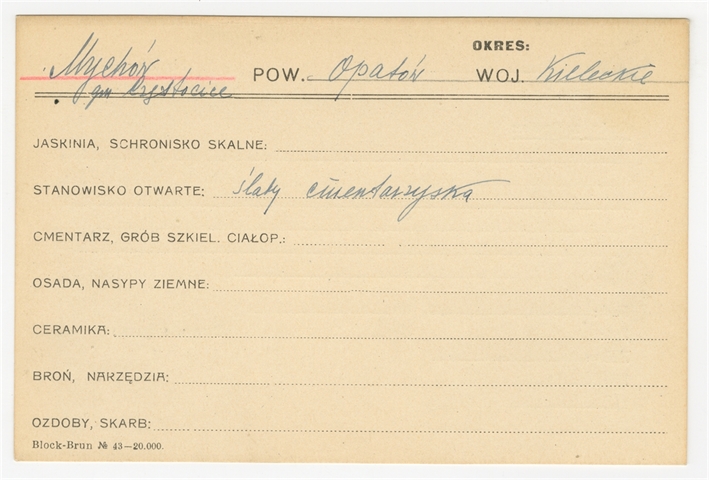 OKRES:
Mychów POW. Opatów WOJ. Kieleckie
gm Częstocice
JASKINIA, SCHRONISKO SKALNE:
STANOWISKO OTWARTE: ślady cmentarzyska
CMENTARZ, GRÓB SZKIEL. CIAŁOP.:
OSADA, NASYPY ZIEMNE:
CERAMIKA:
BROŃ, NARZĘDZIA:
OZDOBY, SKARB:
Block-Brun № 43—20.000.